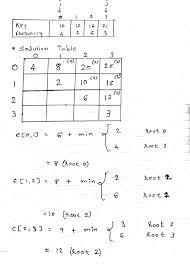 i j
0 1 2 3
Key 10 12 16 21
Frequency 4 2 6 3
* Solution Table
0 1 2 3
0 4 8(0) 20(2) 26(2)
1 2 10(2) 16(2)
2 6 12(2)
3 3
C[0,1] = 6 + min { 2 root 0
4 root 2
= 8 (root 0)
C[1,2] = 8 + min { 2 root 2
6 root 2
= 10 (root 2)
C[2,3] = 9 + min { 3 root 2
6 root 3
= 12 (root 2)